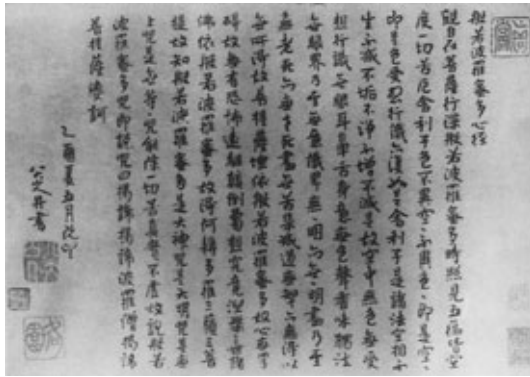 般若波羅蜜多心經
觀自在菩薩行深般若波羅蜜多時照見五蘊皆空
度一切苦厄舍利子色不異空々不異色々即是空々
即是色受想行識亦復如是舍利子是諸法空相不
生不滅不垢不淨不增不減是故空中無色無受
想行識無眼耳鼻舌身意無色聲香味觸法
無眼界乃至無意識界無々明亦無々明盡乃至
無老死亦無老死盡無苦集滅道無智亦無得以
無所得故菩提薩埵依般若波羅蜜多故心無罣
礙故無有恐怖遠離顛倒夢想究竟涅槃三世諸
佛依般若波羅蜜多故得阿耨多羅三藐三菩
提故知般若波羅蜜多是大神咒是大明咒是無
上咒是無等々咒能除一切苦真實不虛故說般若
波羅蜜多咒即說咒曰揭諦揭諦波羅僧揭諦
菩提薩婆訶
乙酉夏五月
書